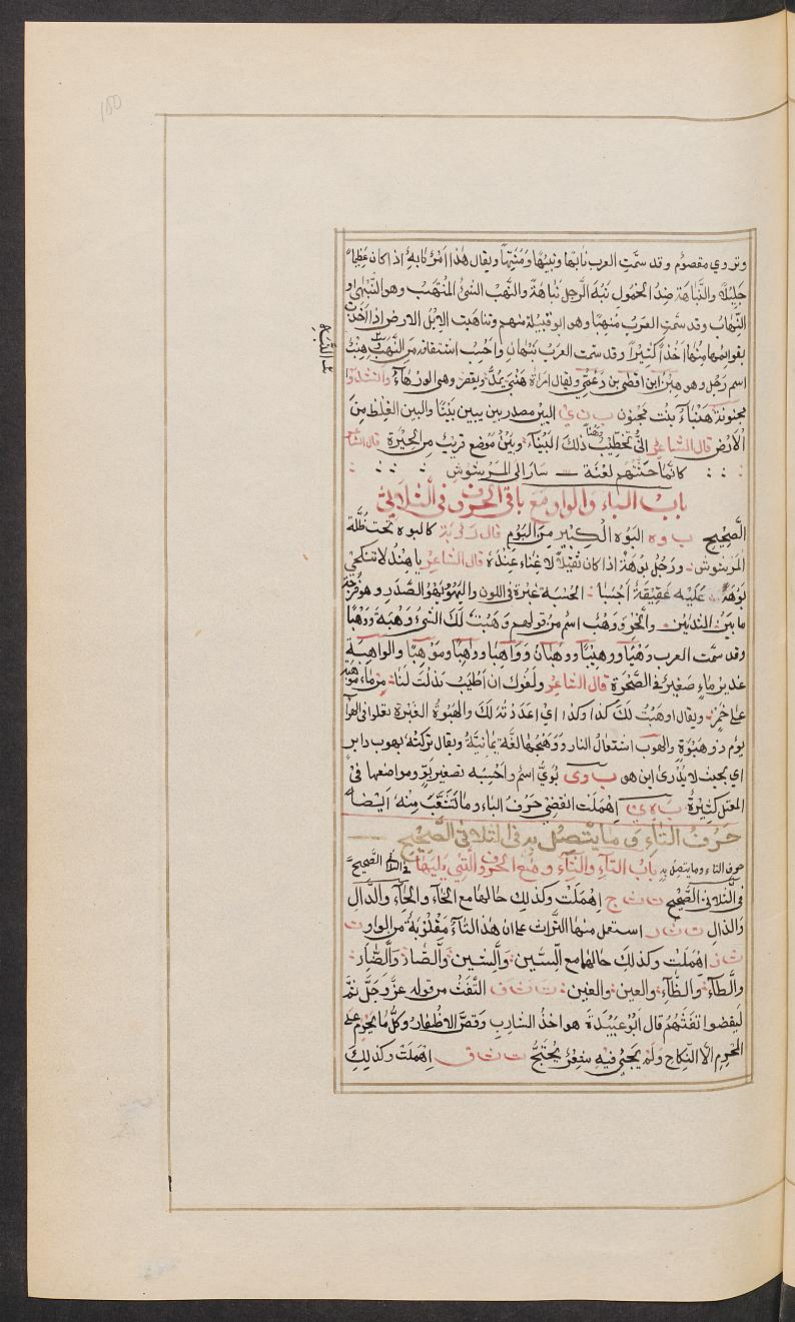 150
وتروي مقصوم وقد سمّت العرب نابها ونبيها ومنبها ويقال هذا امر نابه اذا كان عظيما
جليلا والنباهة ضد الخمول نبه الرجل نباهة والنهب الشئ المنتهب وهو النهبى او
النهاب وقد سمّت العرب منهبا وهو ابو قبيلة منهم وتناهبت الابل الارض اذا اخذت
بقوائمها منها اخذا كثيرا وقد سمت العرب بنهان واحسب اشتقاقه من النهب هنب
اسم رجل وهو هنب ابن افصى بن دعمي ويقال امراة هنبى يمد ويقصر وهي الورهاء وانشدوا
مجنونة هنباء بنت مجنون ب ن ي البين مصدر بين يبين بينا والبين الغلظ من
الارض قال الشاعر الى تخطيت ذلك البيناء وبين موضع قريب من الحيرة قال الشاعر
كانما حثتهم لعنة سار الى
باب الباء والواو مع باقي الحروف في الثلاثي
الصحيح ب وه البوه الكبير من البوم قال رؤبة كالبوه تحت الظلة
المرشوش ورجل بوهة اذا كان ثقيلا لا غناء عنده قال الشاعر يا هند لا تنكحي
بوهة عليه عقيقة احسبا الحسبة غبرة في اللون والبهو بهو الصدر وهو فرجة
ما بين الثديين والنحر ووهب اسم من قولهم وهبت لك الشئ وهبة ووهبا
وقد سمّت العرب وهبا ووهيبا ووهبان وواهبا وموهبا والواهبة
غدير ماء صغير في الصخرة قال الشاعر ولفوك اطيب ان بذلت لنا من ماء موهبة
على خمر ويقال اوهبت لك كذا وكذا اي اعددته لك والهبوة الغبرة تعلو في الهواء
يوم ذو هبوة والهوب اشتعال النار ووهجها لغة يمانية ويقال تركته بهوب دابر
اي بحيث لا يدرى اين هو ب وى بوي اسم واحسبه تصغير بو ومواضعها في
المعتل كثيرة ب ه ي اهملت انقضى حرف الباء وما تشعب منه ايضا
حرف التاء وما يتصل به في الثلاثي الصحيح
حرف التاء وما يتصل به باب التاء والثاء ومع الحروف التي يليها في الثلاثي الصحيح
في الثلاثي الصحيح ت ث ج اهملت وكذلك حالهما مع الحاء والخاء والدال
والذال ت ث ر استعمل منها التراث على ان هذا التاء مقلوبة من الواو ت
ث ز اهملت وكذلك حالهما مع السين والشين والصاد والضاد
والطاء والظاء والعين والغين ت ث ف التفث من قوله عز وجل ثم
ليقضوا تفثهم قال ابو عبيدة هو اخذ الشارب وقص الاظفار وكل ما يحرم على
المحرم الا النكاح ولم يجئ فيه شعر يحتج ت ث ق اهملت وكذلك